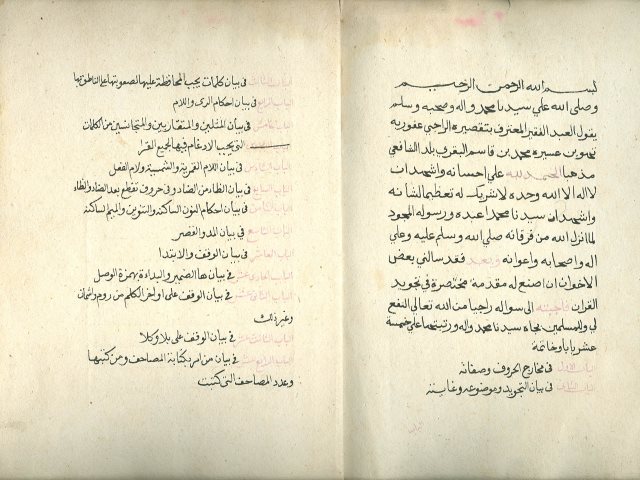 بسم الله الرحمن الرحيم
وصلى الله علي سيدنا محمد واله وصحبه وسلم
يقول العبد الفقير المعترف بتقصيره الراجي عفو ربه
محمد بن قاسم البقري بلد الشافعي
مذهبا الحمد لله علي احسانه واشهد ان
لا اله الا الله وحده لا شريك له تعظيما لشانه
واشهد ان سيدنا محمدا عبده ورسوله المجود
لما انزل الله من فرقانه صلي الله وسلم عليه وعلي
اله واصحابه واعوانه وبعد فقد سالني بعض
الاخوان ان اصنع له مقدمة مختصرة في تجويد
القران فاجبته الى سواله راجيا من الله تعالي النفع
لي وللمسلمين بجاه سيدنا محمد واله ورتبتها علي خمسة
عشر بابا وخاتمة
الباب الاول في مخارج الحروف وصفاته
الباب الثاني في بيان التجويد وموضوعه وغايته
الباب الثالث في بيان كلمات يجب المحافظة عليها لصعوبتها على الناطق بها
الباب الرابع في بيان احكام الرى واللام
الباب الخامس في بيان المثلين والمتقاربين والمتجانسين من الكلمات
التي يجب الادغام فيها لجميع القرا
الباب السادس في بيان اللام القمرية والشمسية ولام الفعل
الباب السابع في بيان الظا من الضاد وفي حروف تقطع بعد الضاد والظاء
الباب الثامن في بيان احكام النون الساكنة والتنوين والميم الساكنة
الباب التاسع في بيان المد والقصر
الباب العاشر في بيان الوقف والابتدا
الباب الحادي عشر في بيان ها الضمير والبداءة بهمزة الوصل
الباب الثاني عشر في بيان الوقف على اواخر الكلم من روم واشمام
وغير ذلك
الباب الثالث عشر في بيان الوقف على بلا وكلا
الباب الرابع عشر في بيان من امر بكتابة المصاحف ومن كتبها
وعدد المصاحف التي كتبت